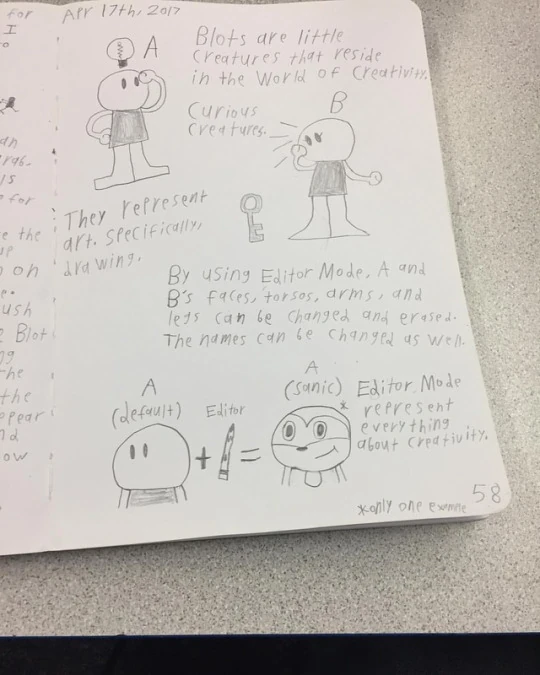 for
I
Apr 17th, 2017
A
Blots are little
creatures that reside
in the World of Creativity.
Curious
creatures.
B
They represent
art. Specifically,
drawing.
By using Editor Mode, A and
B's faces, torsos, arms, and
legs can be changed and erased.
The names can be changed as well.
A
(default)
Editor
+
=
A
(sanic)
*
Editor Mode
represent
everything
about creativity.
*only one example
58
an
is
for
e the
on
ush
Blot
ng
the
the
ppear
nd
ow